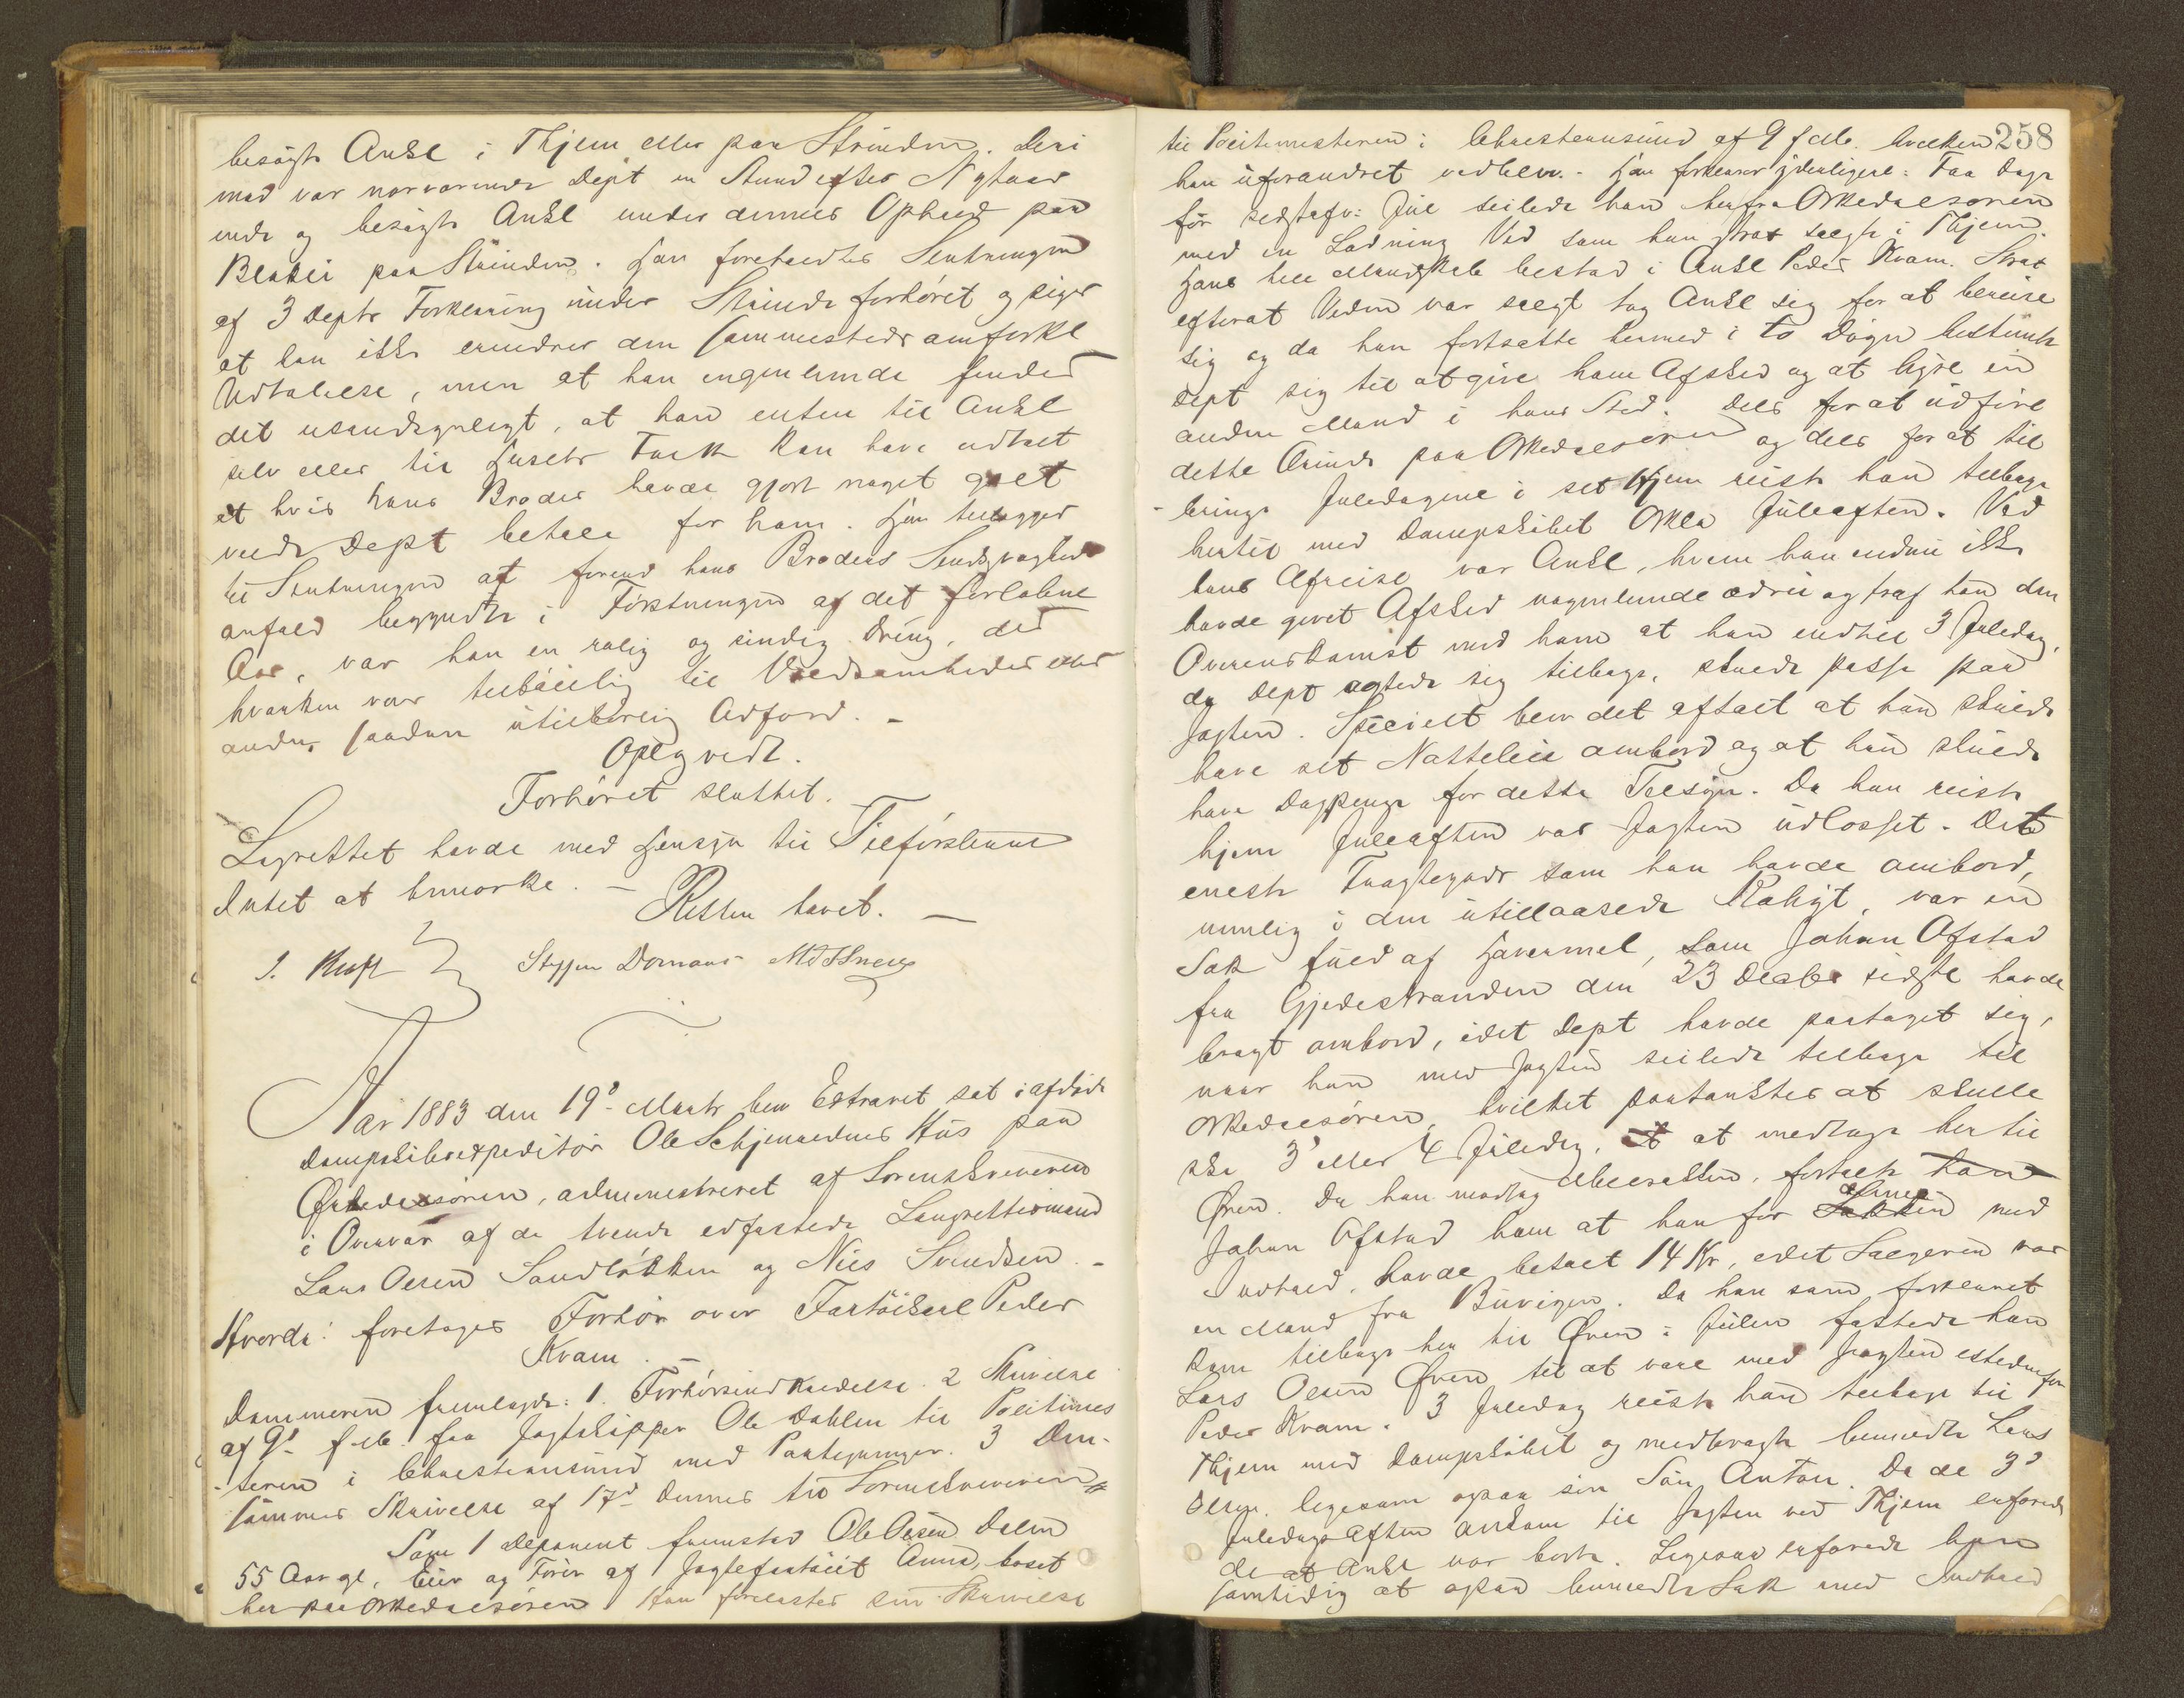 besøgte Ankl i Thjem eller paa Strinden. Deri
mod var nærværende Dept en Stund efter Nytaar
inde og besøgte Ankl under dennes Ophold paa
Blakli paa Strinden. Han foreholdtes Slutningen
af 3 Depts Forklaring under Strinde forhøret og siger
at han ikke erindrer den sammesteds omforkl
Udtalelse, men at han ingenlunde finder
det usandsynligt, at han enten til Ankl
selv eller til Husets Folk kan have udtalt
at hvis hans Broder havde gjort noget galt
vilde Dept betale for ham. Han tillægger
til Slutningen at forend hans Broders Sindssvagheds
anfald begyndte i Førstningen af det forløbne
Aar, var han en rolig og sindig Dreng, der
hverken var tilbøielig til Voldsomheder eller
anden saadan utilbørlig Adfærd. -
Opl og vedt.
Forhøret sluttet.
Lagrettet havde med Hensyn til Tilførslerne
Intet at bemærke. -
Retten hævet. -
J. Kuft Steffen Domaas
Aar 1883 den 19de Marts blev Extraret sat i afdøde
Dampskibsexpeditør Ole Schjenaldnes Hus paa
Ørkedalsøren, administreret af Sorenskriveren
i Overvær af de tvende edfæstede Laugrettesmænd
Lars Olsen Sandløkken og Nils Svendsen. -
Hvorda: foretages Forhør over Fartøikarl Peder
Kvam. -
Dommeren fremlagde: 1. Forhørsindkaldelse. 2 Skrivelse
af 9de f. M. fra Jagtskipper Ole Dahlen til Politimes
-teren i Christiansund med Paategninger. 3 Den-
sammes Skrivelse af 17de dennes til Sorenskriveren
Som 1 Deponent fremstod Ole Olsen Dalen
55 Aar gl, Eier og Fører af Jagtefartøiet Anna, boset
her paa Ørkedalsøren Han forelæstes sin Skrivelse
258
til Politimesteren i Christiansund af 9 f. Mb. hvilken
han uforandret vedblev. - Han forklarer yderligere: Faa Dage
før sidstafv: Jul seilede han herfra Ørkedalsøren
med en Ladning Ved som han strax solgte i Thjem.
Hans hele Mandskab bestod i Ankl Peder Kvam. Strax
efterat Veden var solgt tog Ankl sig for at beruse
sig og da han fortsatte hermed i to Døgn bestemte
Dept sig til at give ham Afsked og at hyre en
anden Mand i hans Sted. Dels for at udføre
dette Ærinde paa Ørkedalsøren og dels for at til
-bringe Juledagene i sit Hjem reiste han tilbage
hertil med Dampskibet Orkla Juleaften. Ved
hans Afreise var Ankl, hvem han endnu ikke
havde givet Afsked nogenlunde ædru og traf han den
Overenskomst med ham at han indtil 3 Juledag,
da Dept agtede sig tilbage, skulde passe paa
Jagten. Specielt blev det aftalt at han skulde
have sit Natteleie ombord og at han skulde
have Dagpenge for dette Tilsyn. Da han reiste
hjem Juleaften var Jagten udlosset. Det
eneste Fragtegods som han havde ombord,
nemlig i den utillaasede Kahyt, var en
Sæk fuld af Havremel, som Johan Ofstad
fra Gjedestranden den 23 Decbr sidste havde
bragt ombord, idet Dept havde paataget sig,
naar han med Jagten seilede tilbage til
Ørkedalsøren, hvilket paatænktes at skulle
ske 3de eller 4 Juledag, at at medtage hertil
Øren. Da han modtog Melsækken, fortalte han
Johan Ofstad ham at han for Sækken med
Indhold, havde betalt 14 Kr, idet Sælgeren var
en Mand fra Buvigen. Da han som forklaret
kom tilbage her til Øren i Julen fæstede han
Lars Olsen Øren til at være med Jagten istedenfor
Peder Kvam. 3 Juledag reiste han tilbage til
Thjem med Dampskibet og medbragte bemeldte Lars
Olsen ligesom ogsaa sin Søn Anton. Da de 3de
Juledags Aften ankom til Jagten ved Thjem erfarede
de at Ankl var borte. Ligesaa erfarede han
samtidig at ogsaa bemeldte Sæk med Indhold